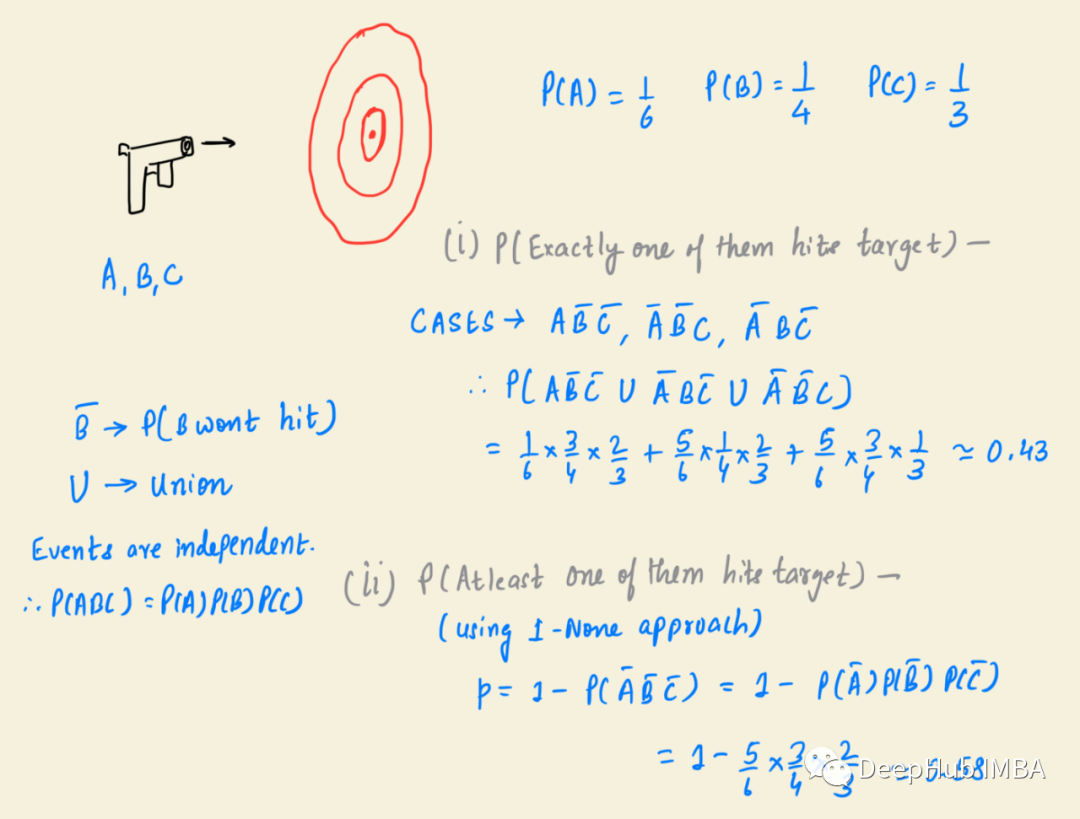 P(A) = 1/6 P(B) = 1/4 P(C) = 1/3
A, B, C
(i) P(Exactly one of them hits target) –
CASES → AB̄C̄, ĀB̄C, ĀBC̄
∴ P(AB̄C̄ U ĀBC̄ U ĀB̄C)
= 1/6 × 3/4 × 2/3 + 5/6 × 1/4 × 2/3 + 5/6 × 3/4 × 1/3 ≃ 0.43
B̄ → P(B wont hit)
U → Union
Events are independent.
∴ P(ABC) = P(A)P(B)P(C)
(ii) P(Atleast one of them hits target) –
(using 1-None approach)
p = 1 – P(ĀB̄C̄) = 1 – P(Ā)P(B̄)P(C̄)
= 1 – 5/6 × 3/4 × 2/3 = 0.58
DeepHub IMBA